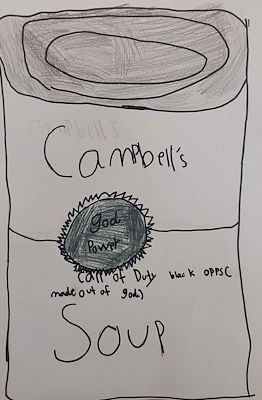 Campbell's
Campbell's
god
Power
Call of Duty black opps (
made out of gods)
Soup